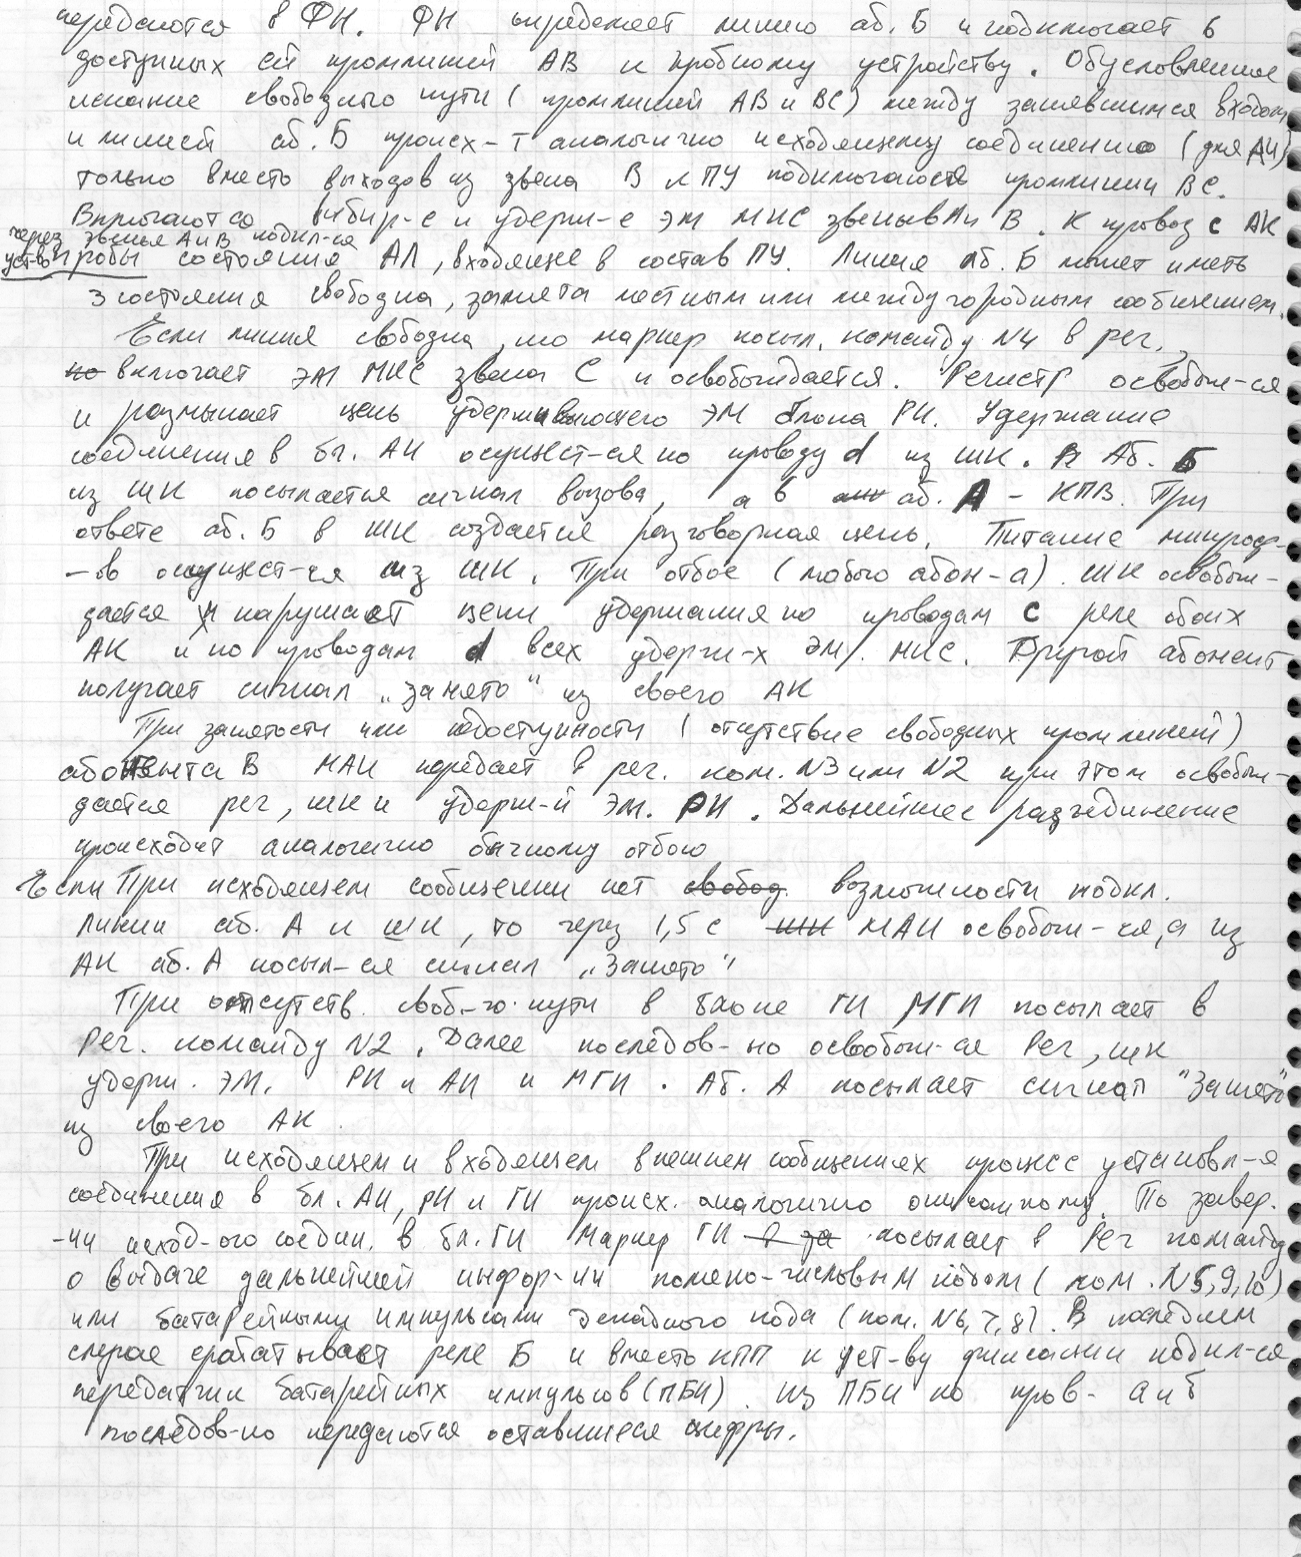 передаются в ФИ. ФИ определяет линию аб. Б и подключает 6
доступных ей промлиний АВ к пробному устройству. Обусловленное
искание свободного пути (промлиний АВ и ВС) между занявшимся входом
и линией аб. Б происх-т аналогично исходящему соединению (для АИ)
только вместо выходов из звена В к ПУ подключаются промлинии ВС.
Включаются выбир-е и удерж-е ЭМ МКС звеньев А и В. К провод с АК
через звенья А и В подкл-ся
уст-во пробы состояния АЛ, входящее в состав ПУ. Линия аб. Б может иметь
3 состояния свободна, занята местным или междугородным сообщением.
Если линия свободна, то маркер посыл. команду N4 в рег.,
но включает ЭМ МКС звена С и освобождается. Регистр освобож-ся
и размыкает цепь удерживающего ЭМ блока РИ. Удержание
соединения в бл. АИ осущест-ся по проводу d из ШК. В Аб. Б
из ШК посылается сигнал вызова, а в аб. А - КПВ. При
ответе аб. Б в ШК создается разговорная цепь. Питание микроф-
-ов осущест-ся из ШК. При отбое (любого абон-а) ШК освобож-
дается и нарушает цепи удержания по проводам с реле обоих
АК и по проводам d всех удерж-х ЭМ. МКС. Другой абонент
получает сигнал "занято" из своего АК
При занятости или недоступности (отсутствие свободных промлиний)
абонента В МАИ передает в рег. ком. N3 или N2 при этом освобож-
дается рег, ШК и удерж-й ЭМ. РИ. Дальнейшее разъединение
происходит аналогично обычному отбою
Если При исходящем сообщении нет свобод. возможности подкл.
линии аб. А к ШК, то через 1,5 с ШК МАИ освобож-ся, а из
АК аб. А посыл-ся сигнал "Занято"
При отсутств. своб-го пути в блоке ГИ МГИ посылает в
Рег. команду N2. Далее последов-но освобож-ся Рег, ШК
удерж. ЭМ. РИ и АИ и МГИ. Аб. А посылает сигнал "Занято"
из своего АК.
При исходящем и входящем внешнем сообщениях процесс установл-я
соединения в бл. АИ, РИ и ГИ происх. аналогично описанному. По завер.
-ии исход-ого соедин. в бл. ГИ Маркер ГИ в за посылает в Рег команду
о выдаче дальнейшей инфор-ии полено-числовым кодом (ком. N5,9,10)
или батарейными импульсами декадного кода (ком. N6,7,8). В последнем
случае срабатывает реле Б и вместо КПП к уст-ву фиксации подкл-ся
передатчик батарейных импульсов (ПБИ). Из ПБИ по пров- а и б
последов-но передаются оставшиеся цифры.